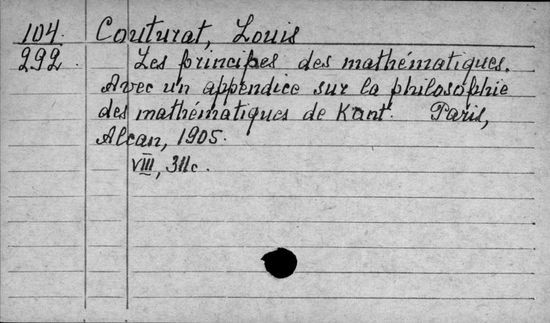 104. Couturat, Louis
292. Les principes des mathématiques.
Avec un appendice sur la philosophie
des mathématiques de Kant. Paris,
Alcan, 1905.
VIII, 311c.